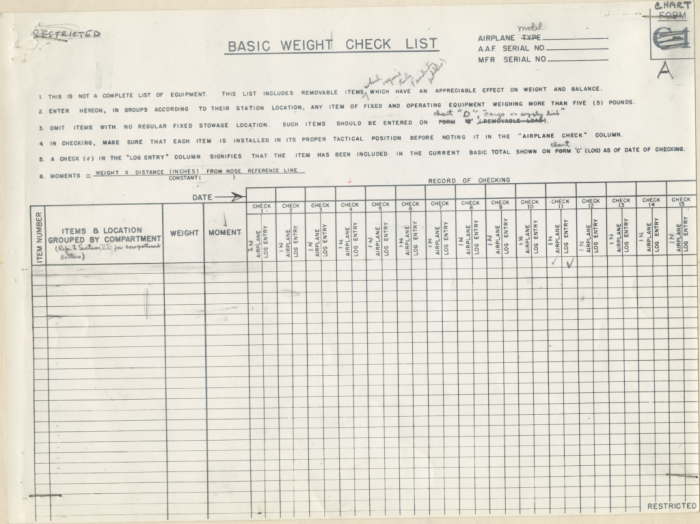 CHART
RESTRICTED
FORM
model
AIRPLANE TYPE
BASIC WEIGHT CHECK LIST
A.A.F. SERIAL NO.
MFR SERIAL NO.
A
1. THIS IS NOT A COMPLETE LIST OF EQUIPMENT. THIS LIST INCLUDES REMOVABLE ITEMS WHICH HAVE AN APPRECIABLE EFFECT ON WEIGHT AND BALANCE.
2. ENTER HEREON, IN GROUPS ACCORDING TO THEIR STATION LOCATION, ANY ITEM OF FIXED AND OPERATING EQUIPMENT WEIGHING MORE THAN FIVE (5) POUNDS.
chart "D"
3. OMIT ITEMS WITH NO REGULAR FIXED STOWAGE LOCATION. SUCH ITEMS SHOULD BE ENTERED ON FORM (REMOVABLE LOAD).
4. IN CHECKING, MAKE SURE THAT EACH ITEM IS INSTALLED IN ITS PROPER TACTICAL POSITION BEFORE NOTING IT IN THE "AIRPLANE CHECK" COLUMN.
chart
5. A CHECK (✓) IN THE "LOG ENTRY" COLUMN SIGNIFIES THAT THE ITEM HAS BEEN INCLUDED IN THE CURRENT BASIC TOTAL SHOWN ON FORM "C" (LOG) AS OF DATE OF CHECKING.
6. MOMENTS = WEIGHT X DISTANCE (INCHES) FROM NOSE REFERENCE LINE
CONSTANT( )
RECORD OF CHECKING
DATE
CHECK 1 CHECK 2 CHECK 3 CHECK 4 CHECK 5 CHECK 6 CHECK 7 CHECK 8 CHECK 9 CHECK 10 CHECK 11 CHECK 12 CHECK 13 CHECK 14 CHECK 15
ITEM NUMBER
ITEMS & LOCATION
GROUPED BY COMPARTMENT
for compartment
letters)
WEIGHT
MOMENT
IN AIRPLANE LOG ENTRY IN AIRPLANE LOG ENTRY IN AIRPLANE LOG ENTRY IN AIRPLANE LOG ENTRY IN AIRPLANE LOG ENTRY IN AIRPLANE LOG ENTRY IN AIRPLANE LOG ENTRY IN AIRPLANE LOG ENTRY IN AIRPLANE LOG ENTRY IN AIRPLANE LOG ENTRY IN AIRPLANE LOG ENTRY IN AIRPLANE LOG ENTRY IN AIRPLANE LOG ENTRY IN AIRPLANE LOG ENTRY IN AIRPLANE LOG ENTRY
✓ ✓
RESTRICTED